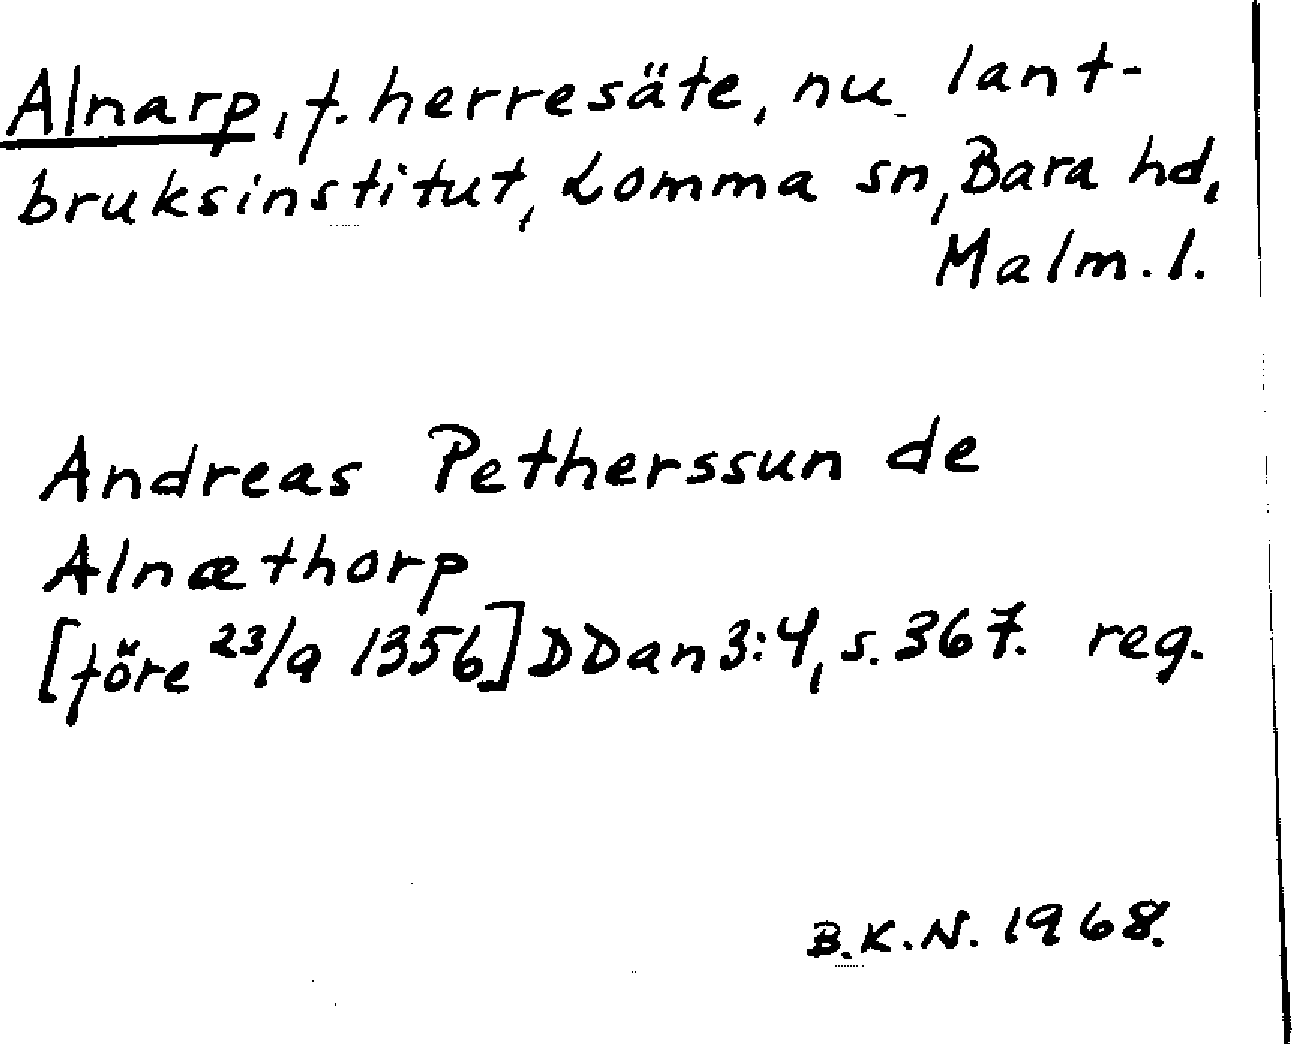 Alnarp, f. herresäte, nu lant-
bruksinstitut, Lomma sn, Bara hd,
Malm. l.
Andreas Petherssun de
Alnæthorp
[före 23/9 1356] DDan 3:4, s. 367. reg.
B.K.N. 1968.